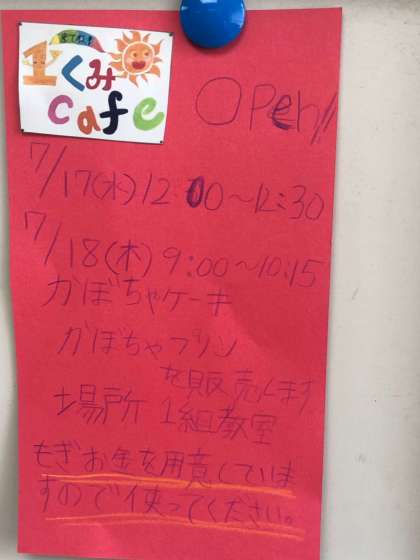 1くみ
cafe
OPEN!!
7/17(水)12:00～12:30
7/18(木)9:00～10:15
かぼちゃケーキ
かぼちゃプリン
を販売します
場所 1組教室
もぎお金を用意していま
すので使ってください。